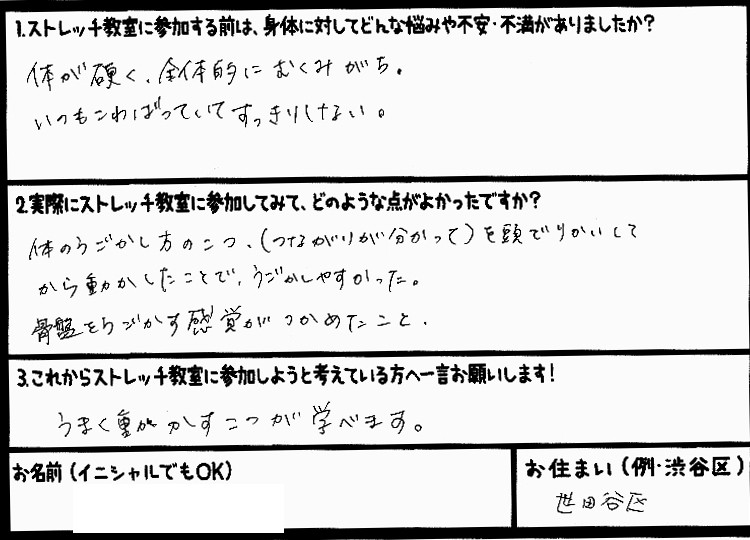 1.ストレッチ教室に参加する前は、身体に対してどんな悩みや不安・不満がありましたか?
体が硬く、全体的にむくみがち。
いつもこわばっていてすっきりしない。
2.実際にストレッチ教室に参加してみて、どのような点がよかったですか?
体のうごかし方のコツ、(つながりが分かって)を頭でりかいして
から動かしたことで、うごかしやすかった。
骨盤をうごかす感覚がつかめたこと、
3.これからストレッチ教室に参加しようと考えている方へ一言お願いします!
うまく動かすコツが学べます。
お名前(イニシャルでもOK)
お住まい(例・渋谷区)
世田谷区